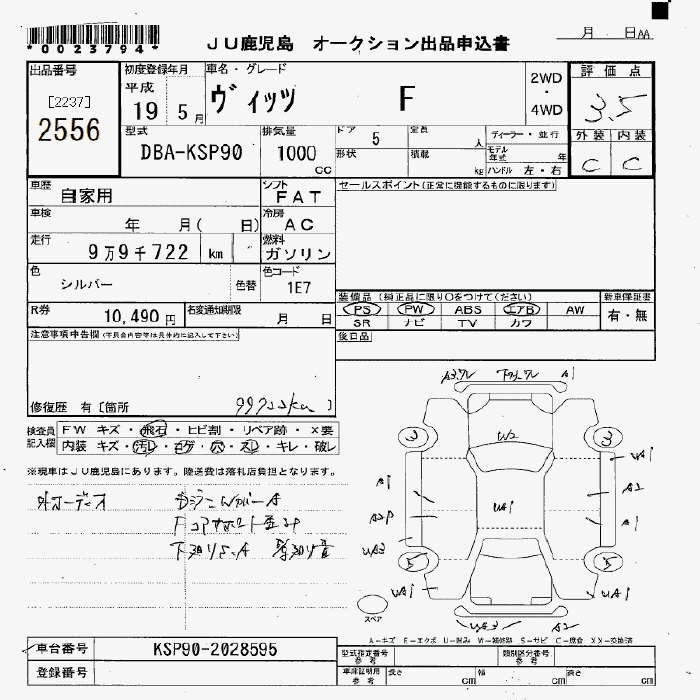 *0023794*
JU鹿児島 オークション出品申込書
月 日AA
出品番号
[2237]
2556
初度登録年月
平成
19 5月
車名・グレード
ヴィッツ F
2WD
・
4WD
評価点
3.5
外装 内装
C C
型式
DBA-KSP90
排気量
1000
cc
ドア 5
定員 人
形状
積載 kg
ディーラー・並行
モデル年式 年
ハンドル 左・右
車歴
自家用
シフト
FAT
車検
年 月( 日)
冷房
AC
走行
9万9千722 km
燃料
ガソリン
色
シルバー
色替
色コード
1E7
セールスポイント(正常に機能するものに限ります)
R券
10,490 円
名変通知期限
月 日
装備品(純正品に限り○をつけてください)
新車保証書
PS PW ABS エアB AW
SR ナビ TV カワ
有・無
注意事項申告欄
後日品
修復歴 有 [箇所 ]
検査員記入欄
FW キズ・飛石・ヒビ割・リペア跡・×要
内装 キズ・汚レ・コゲ・穴・スレ・キレ・破レ
※現車はJU鹿児島にあります。陸送費は落札店負担となります。
外オーディオ
A3 A1
W2
3 3
UA1
A1
A2
UA1
A1
UA3
5 5
UA1 UA1
UA3 A2
スペア
A-キズ E-エクボ U-凹み W-補修跡 S-サビ C-腐食 XX-交換済
車台番号 KSP90-2028595
登録番号
型式指定番号
参考
類別区分番号
参考
車庫証明用
参考
長さ cm
幅 cm
高さ cm